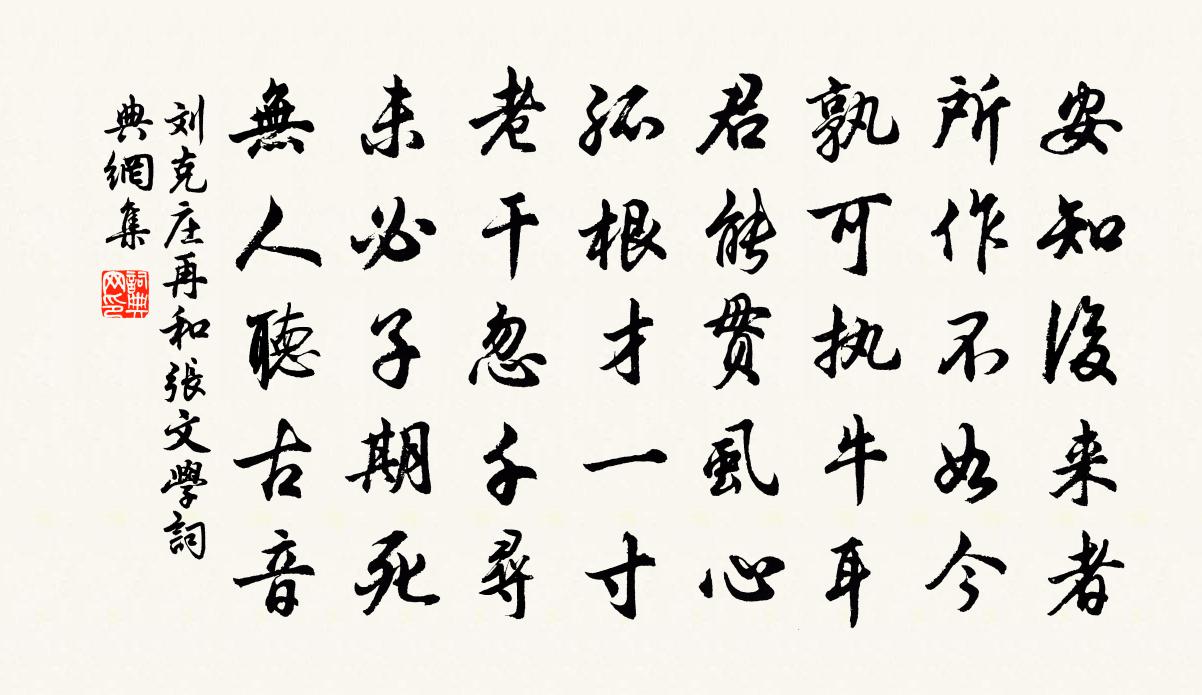 安知後来者
所作不如今
孰可执牛耳
君能贯虱心
孤根才一寸
老干忽千尋
未必子期死
無人聽古音
刘克庄再和張文學詞
典網集
詞典
网印